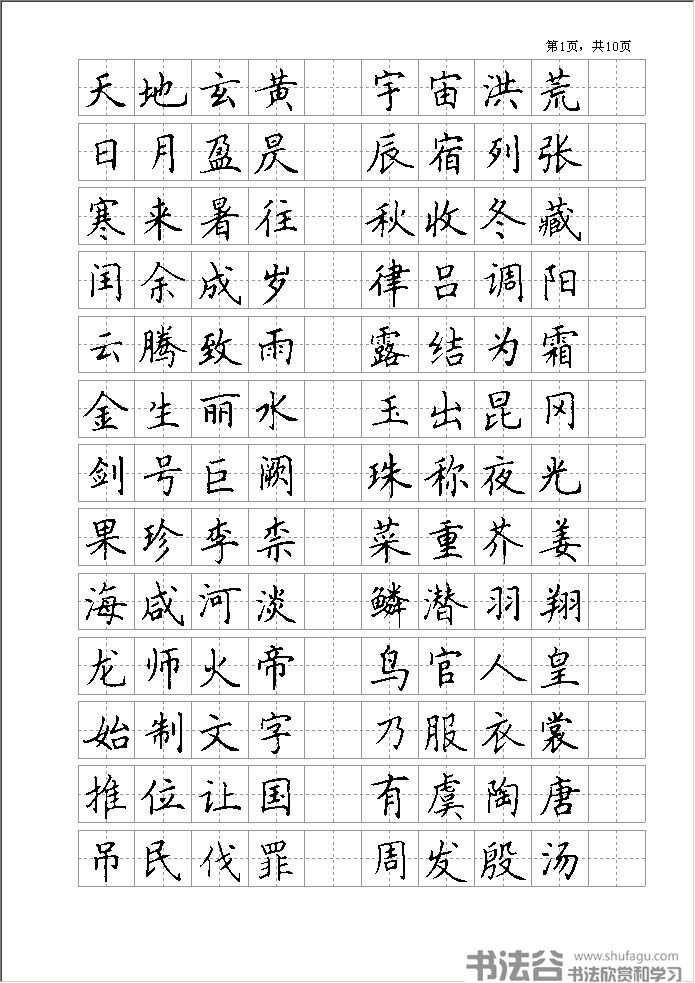 第1页，共10页
天地玄黄 宇宙洪荒
日月盈昃 辰宿列张
寒来暑往 秋收冬藏
闰余成岁 律吕调阳
云腾致雨 露结为霜
金生丽水 玉出昆冈
剑号巨阙 珠称夜光
果珍李柰 菜重芥姜
海咸河淡 鳞潜羽翔
龙师火帝 鸟官人皇
始制文字 乃服衣裳
推位让国 有虞陶唐
吊民伐罪 周发殷汤
书法谷 www.shufagu.com
书法欣赏和学习